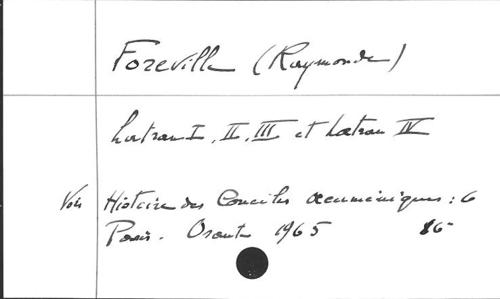 Foreville (Raymonde)
Latran I, II, III et Latran IV
Voir Histoire des Conciles œcuméniques : 6
Paris. Orante 1965 86-